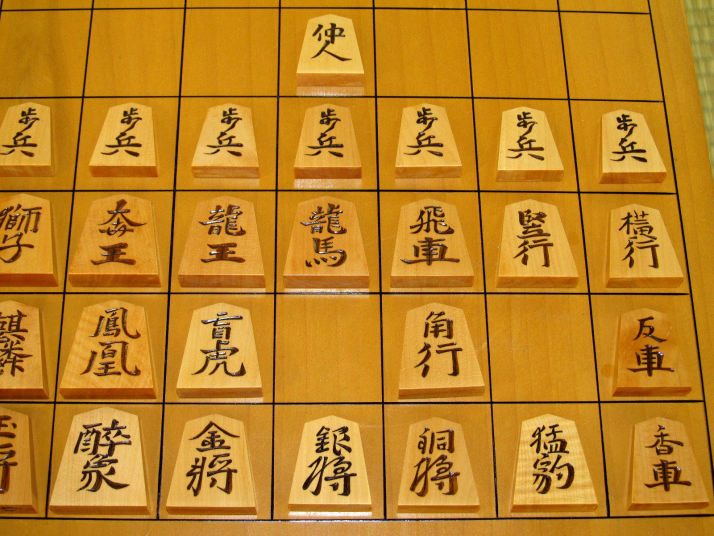 仲人
歩兵 歩兵 歩兵 歩兵 歩兵 歩兵 歩兵
獅子 奔王 龍王 龍馬 飛車 竪行 横行
麒麟 鳳凰 盲虎 角行 反車
玉将 醉象 金将 銀将 銅将 猛豹 香車